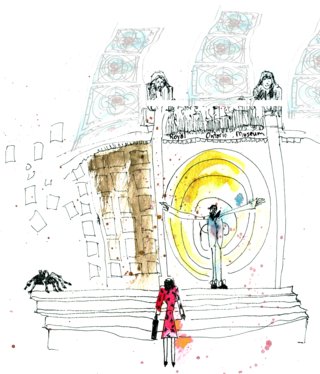 Royal Ontario Museum